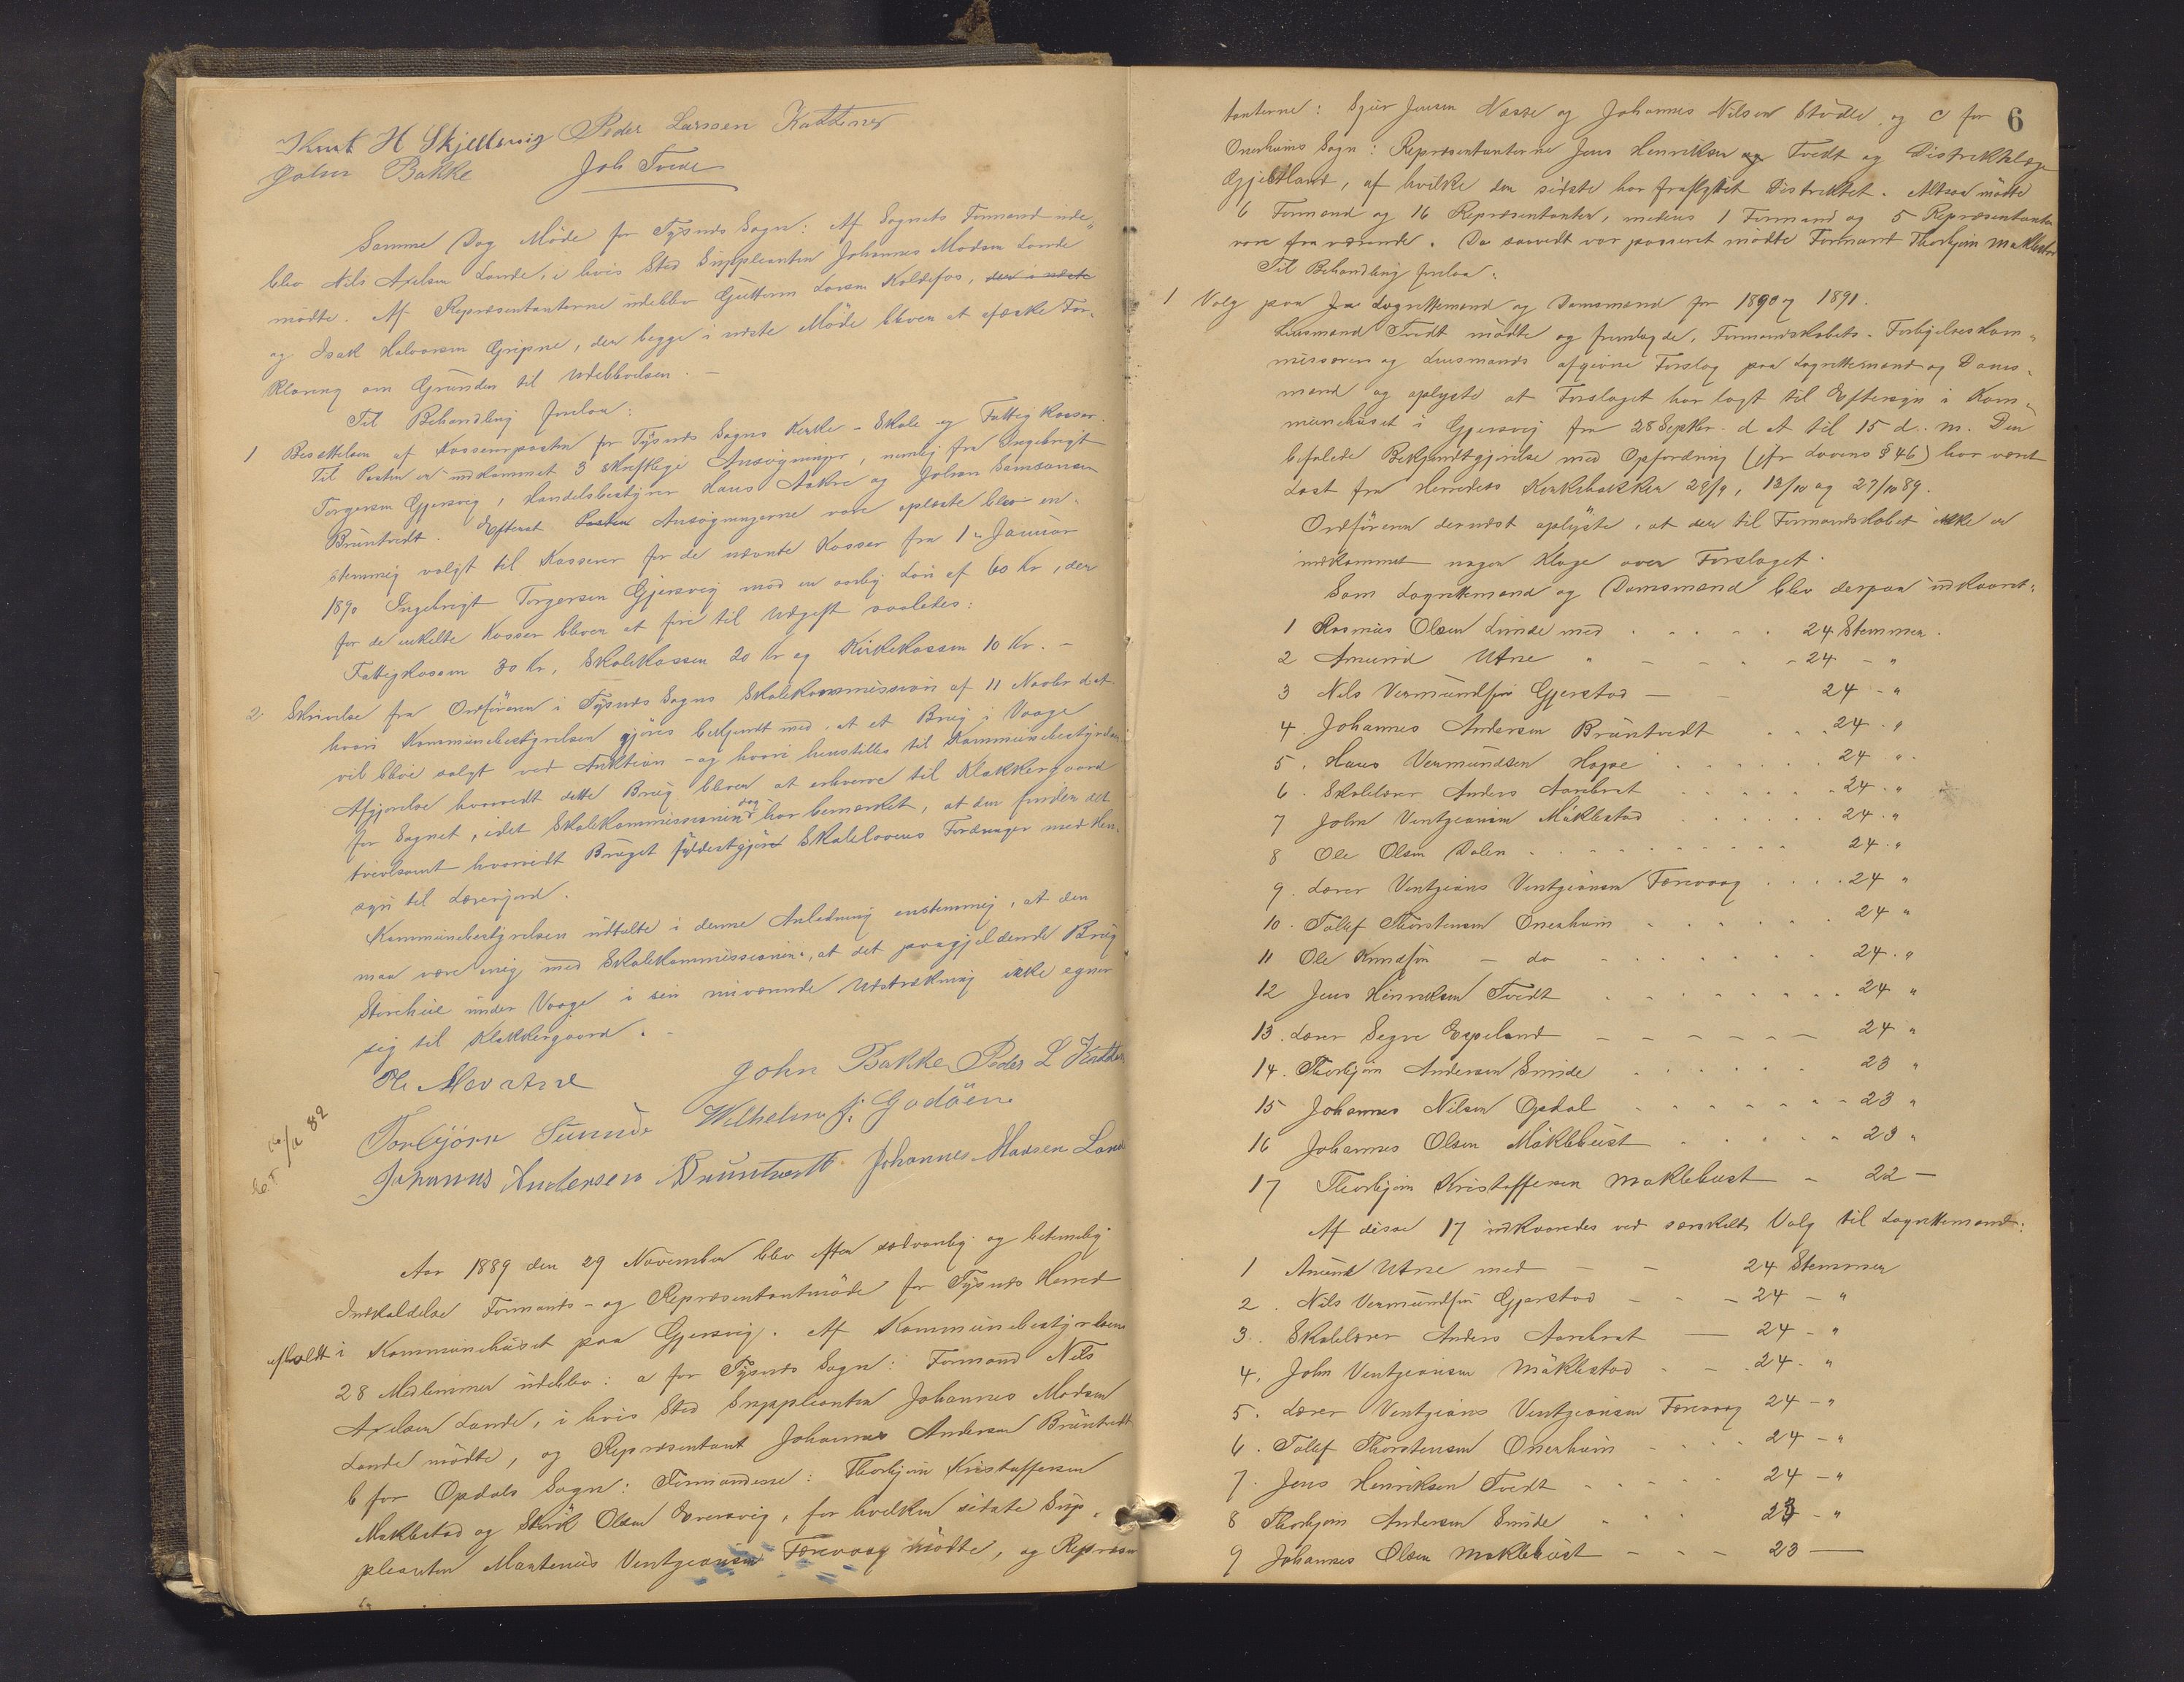 Knut H Skjellevig Peder Larssen Kattenes
John Bakke Joh Tvede
Samme Dag Møde for Tysnes Sogn: Af Sognets Formænd ude„
blev Nils Axelsen Lande, i hvis Sted Suppleanten Johannes Madsen Lande
mødte. Af Repræsentanterne udeblev Guttorm Larsen Koldefos, der i næste
og Isak Halvorsen Gripne, der begge i næste Møde bliver at afæske For„
klaring om Grunden til Udeblivelsen. —
Til Behandling forelaa:
1 Besættelsen af Kassererposten for Tysnes Sogns Kirke - Skole og Fattigkasser.
Til Posten er indkommet 3 skriftlige Ansøgninger, nemlig fra Ingebrigt
Torgersen Gjersvig, Handelsbestyrer Hans Aakre og Johan Samsonsen
Bruntvedt. Efterat Posten Ansøgningerne vare oplæste blev en„
stemmig valgt til Kasserer for de nævnte Kasser fra 1ste Januar
1890 Ingebrigt Torgersen Gjersvig mod en aarlig Løn af 60 Kr, der
for de enkelte Kasser bliver at føre til Udgift saaledes:
Fattigkassen 30 Kr, Skolekassen 20 Kr og Kirkekassen 10 Kr. —
2. Skrivelse fra Ordføreren i Tysnes Sogns Skolekommission af 11 Novbr d.A.
hvori Kommunebestyrelsen gjøres bekjendt med, at et Brug i Vaage
vil blive solgt ved Auktion - og hvori henstilles til Kommunebestyrelsens
Afgjørelse hvorvidt dette Brug bliver at erhverve til Klokkergaard
for Sognet, idet Skolekommissionen dog har bemærket, at den finder det
tvivlsomt hvorvidt Bruget fyldestgjør Skolelovens Fordringer med Hen„
syn til Lærerjord.
Kommunebestyrelsen udtalte i denne Anledning enstemmig, at den
maa være enig med Skolekommissionen, at det paagjældende Brug
Storeheie under Vaage i sin nuværende Udstrækning ikke egner
sig til Klokkergaard. —
John Bakke Peder L Katten
Torbjørn Sunde Wilhelm J. Godøen
Johannes Andersen Bruntvedt Johannes Madsen Lande
Aar 1889 den 29 November blev efter sædvanlig og betimelig
Indkaldelse Formands- og Repræsentantmøde for Tysnes Herred
afholdt i Kommunehuset paa Gjersvig. Af Kommunebestyrelsens
28 Medlemmer udeblev: a for Tysnes Sogn: Formand Nils
Axelsen Lande, i hvis Sted Suppleanten Johannes Madsen
Lande mødte, og Repræsentant Johannes Andersen Bruntvedt
b for Opdals Sogn: Formændene: Thorbjørn Kristoffersen
Møklestad og Størk Olsen Ørersvig, for hvilken sidste Sup„
pleanten Martenius Ventzeansen Færevaag mødte, og Repræsen
6
tanterne: Sjur Jensen Næsse og Johannes Nilsen Stødle og c for
Onerheims Sogn: Repræsentanterne Jens Henriksen og Tvedt og Distriktslæge
Gjestland, af hvilke den sidste har fraflyttet Distriktet. Altsaa mødte
6 Formænd og 16 Repræsentanter, medens 1 Formand og 5 Repræsentanter
vare fraværende. Da saavidt var passeret mødte Formand Thorbjørn Møklestad
Til Behandling forelaa:
1 Valg paa Lagrettemænd og Domsmænd for 1890 og 1891.
Lensmand Tvedt mødte og fremlagde, Formandskabets - Forligelseskom„
missærers og Lensmands afgivne Forslag paa Lagrettemænd og Doms„
mænd og oplyste at Forslaget har lagt til Eftersyn i Kom„
munehuset i Gjersvig fra 28 Septbr. d A til 15 d. M. Den
befalede Bekjendtgjørelse med Opfordring (jfr Lovens § 46) har været
læst fra Herredets Kirkebakker 29/9, 13/10 og 27/10 89.
Ordføreren dernæst oplyste, at der til Formandskabet ikke er
indkommet nogen Klage over Forslaget.
Som Lagrettemænd og Domsmænd blev derpaa udkaaret:
1 Rasmus Olsen Lunde med . . . . . 24 Stemmer.
2 Amund Utne " - - - - 24 - "
3 Nils Vermundsøn Gjerstad — - 24 - "
4. Johannes Andersen Bruntvedt . . . 24 . "
5. Hans Vermundsen Hope . . . . . . 24 "
6. Skolelærer Anders Aarebrot . . . . . . 24. "
7 John Ventzeansen Møklestad . . . . . . 24. "
8 Ole Olsen Dalen . . . . . . . . . 24. "
9. Lærer Ventzeans Ventzeansen Færevaag . . . . 24 "
10. Tollef Thorstensen Onerheim . . . . . . 24 "
11 Ole Knudsøn — do - . . . . . . 24. "
12 Jens Hinriksen Tvedt . . . . . . . . . 24 "
13. Lærer Segre Espeland — - - - - — 24 "
14. Thorbjørn Andersen Sunde . . . . . . 23 "
15 Johannes Nilsen Opdal - - - - - - - 23 "
16 Johannes Olsen Møklebust . . . . . . 23 "
17 Thorbjørn Kristoffersen Møklebust - 22 —
Af disse 17 udkaaredes ved særskilt Valg til Lagrettemænd:
1 Amund Utne med — - 24 Stemmer
2. Nils Vermundsøn Gjerstad — - — 24 - "
3. Skolelærer Anders Aarebrot — 24 - "
4. John Ventzeansen Møklestad - — . 24 - "
5. Lærer Ventzeans Ventzeansen Færevaag 24 - "
6. Tollef Thorstensen Onerheim - - - - 24 - "
7. Jens Henriksen Tvedt - - - - 24 - "
8 Thorbjørn Andersen Sunde - - - 23 - "
9 Johannes Olsen Møklebust - - — 23 —